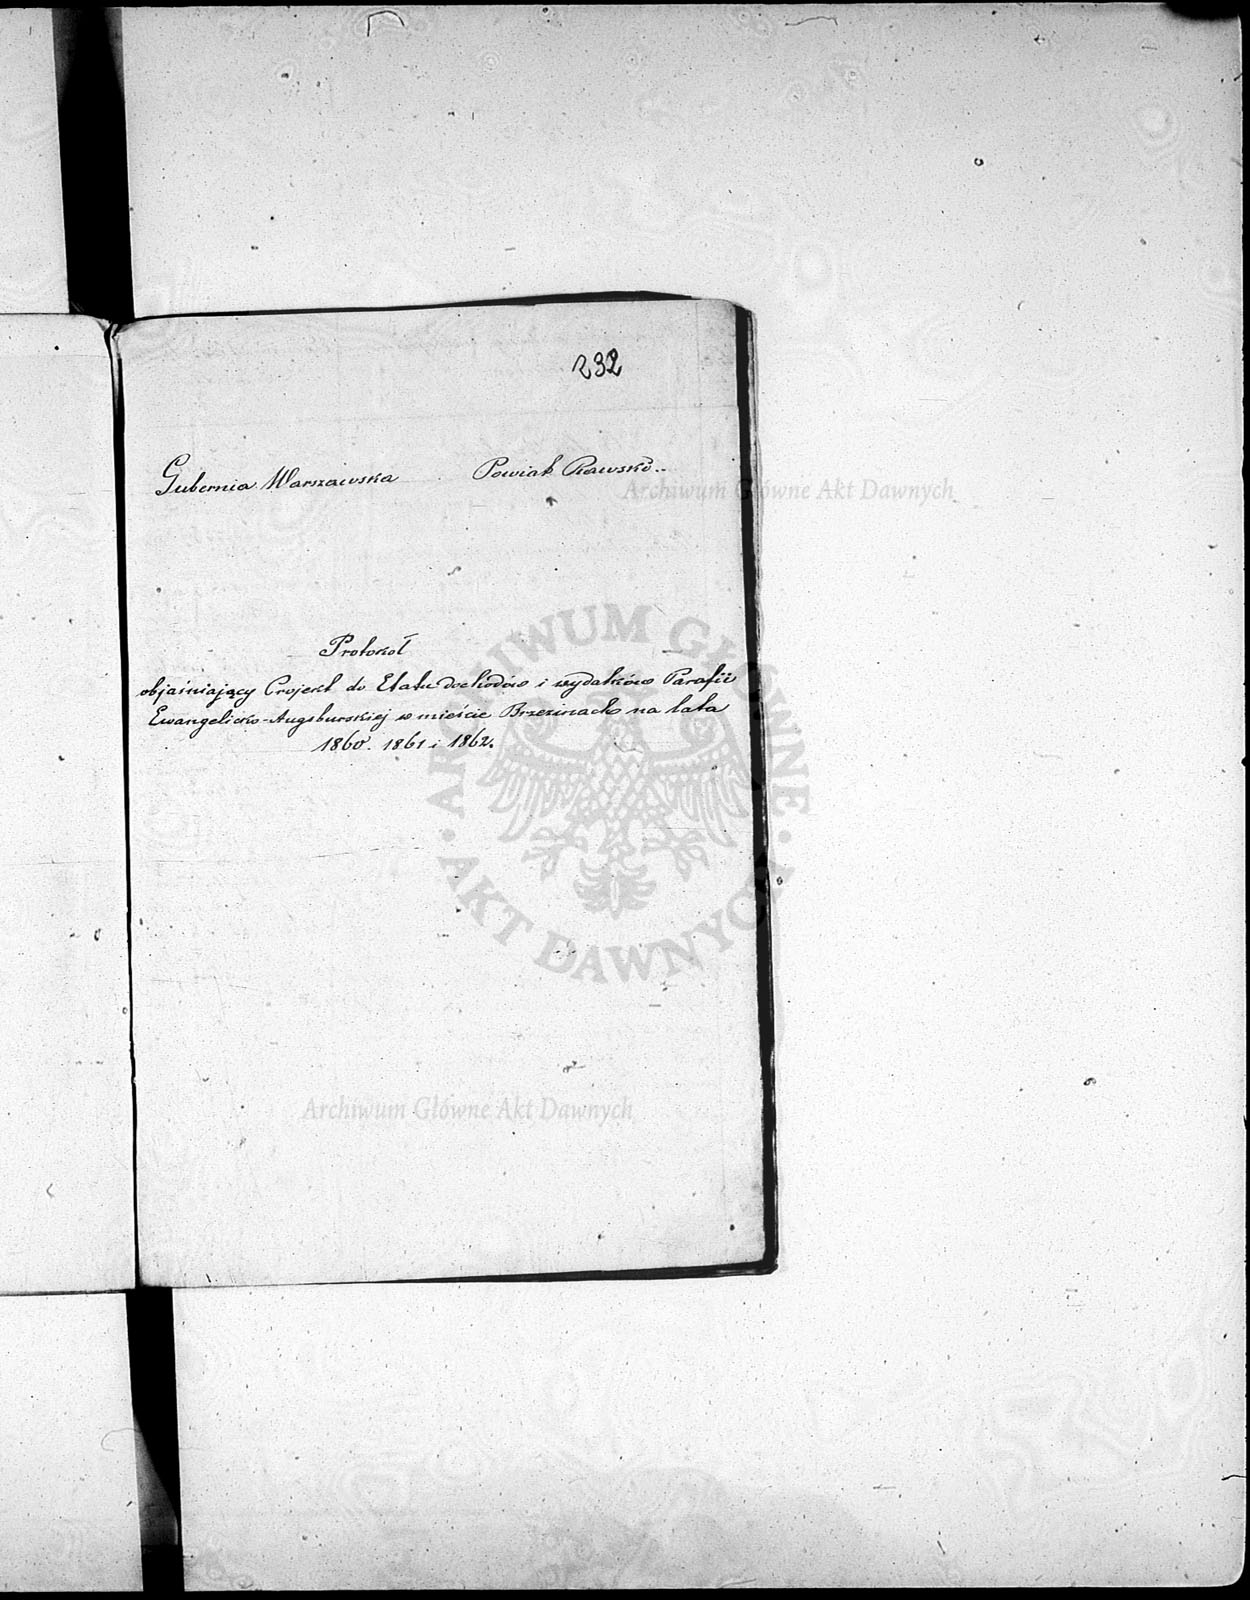 232
Gubernia Warszawska Powiat Rawski
Protokół
objaśniający Projekt do Etatu dochodów i wydatków Parafii
Ewangelicko-Augsburskiej w mieście Brzezinach na lata
1860. 1861 i 1862.
Archiwum Główne Akt Dawnych
ARCHIWUM GŁÓWNE
AKT DAWNYCH
Archiwum Główne Akt Dawnych